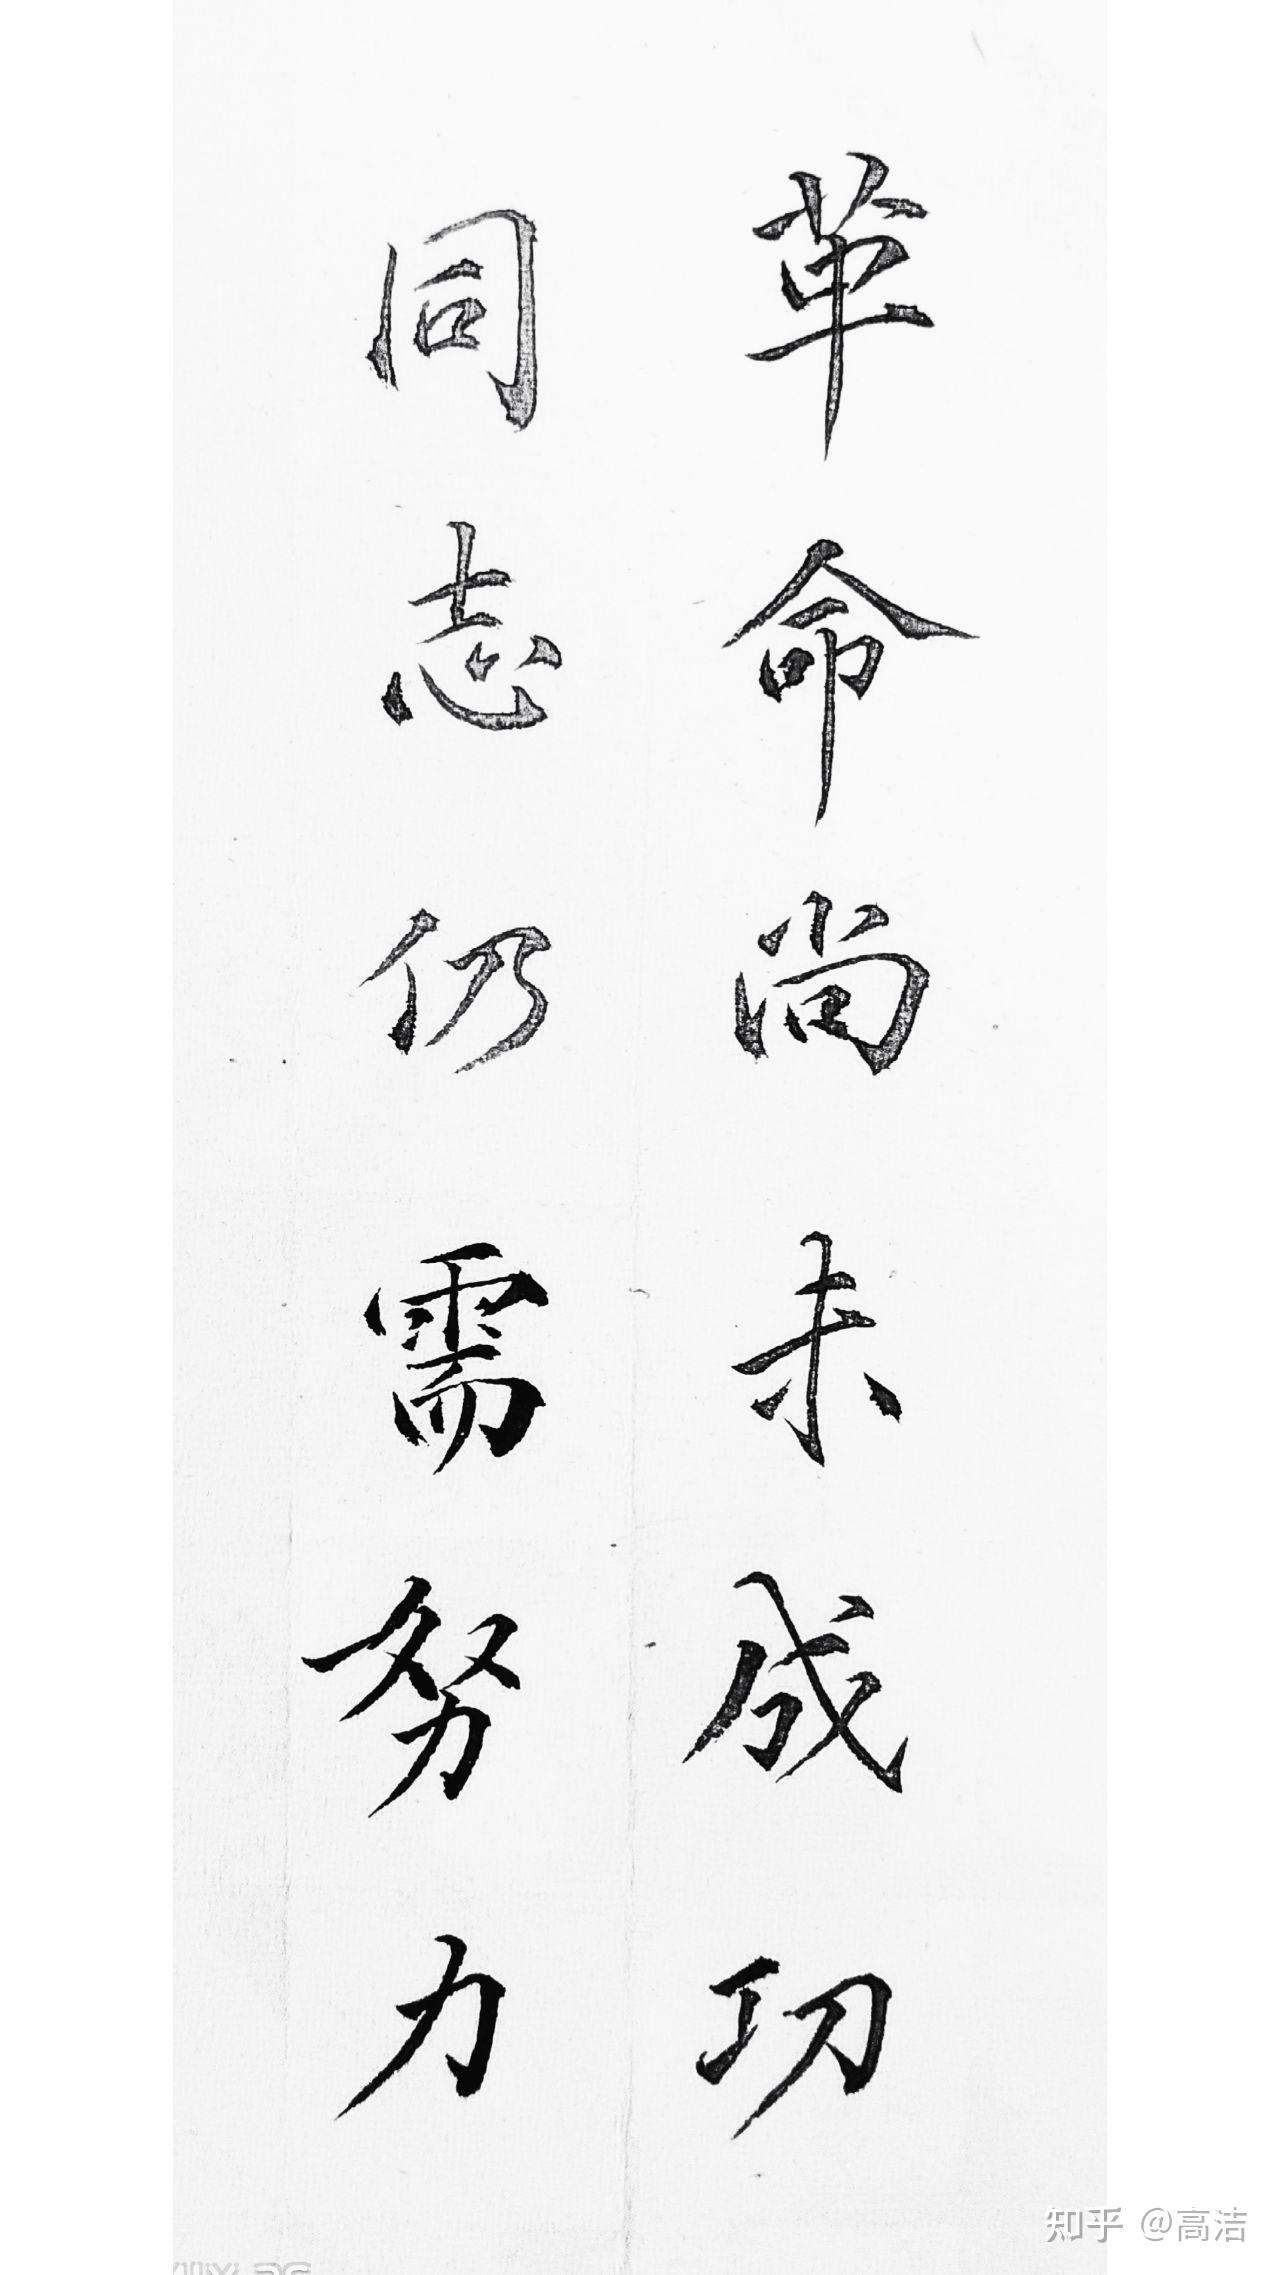 革命尚未成功
同志仍需努力
知乎 @高洁